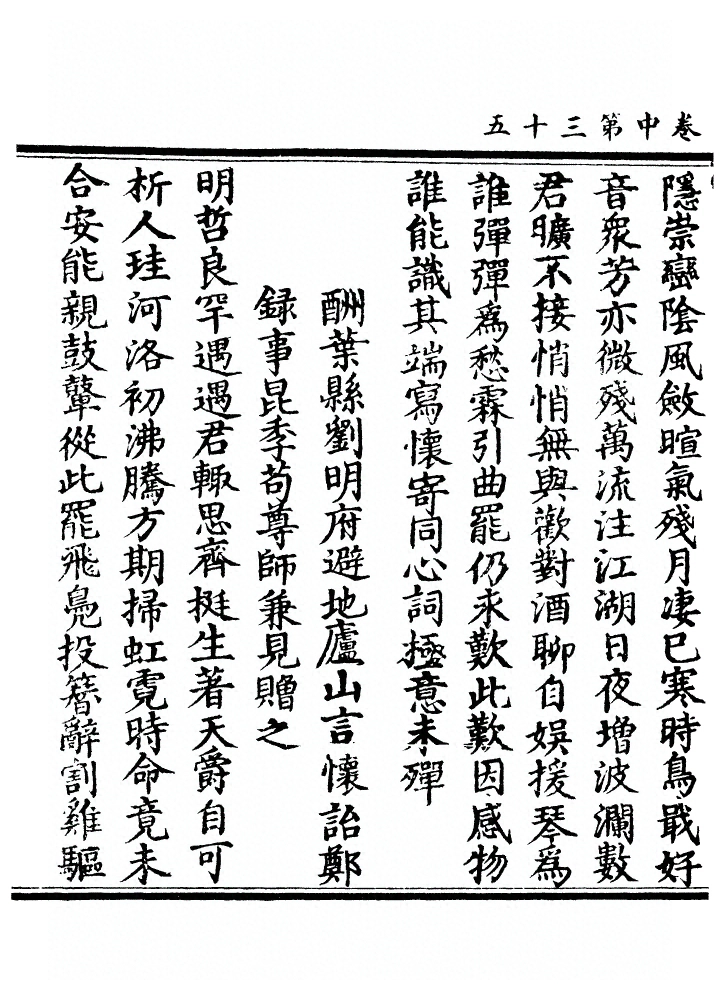 卷中第三十五
隱崇巒陰風斂暄氣殘月凄已寒時鳥戢好
音衆芳亦微殘萬流注江湖日夜增波瀾數
君曠不接悄悄無與歡對酒聊自娯援琴爲
誰彈彈爲愁霖引曲罷仍永歎此歎因感物
誰能識其端寫懷寄同心詞極意未殫
酬葉縣劉明府避地廬山言懷詒鄭
録事昆季苟尊師兼見贈之
明哲良罕遇遇君輙思齊挺生著天爵自可
析人珪河洛初沸騰方期掃虹霓時命竟未
合安能親鼓鼙從此罷飛鳧投簪辭割雞驅